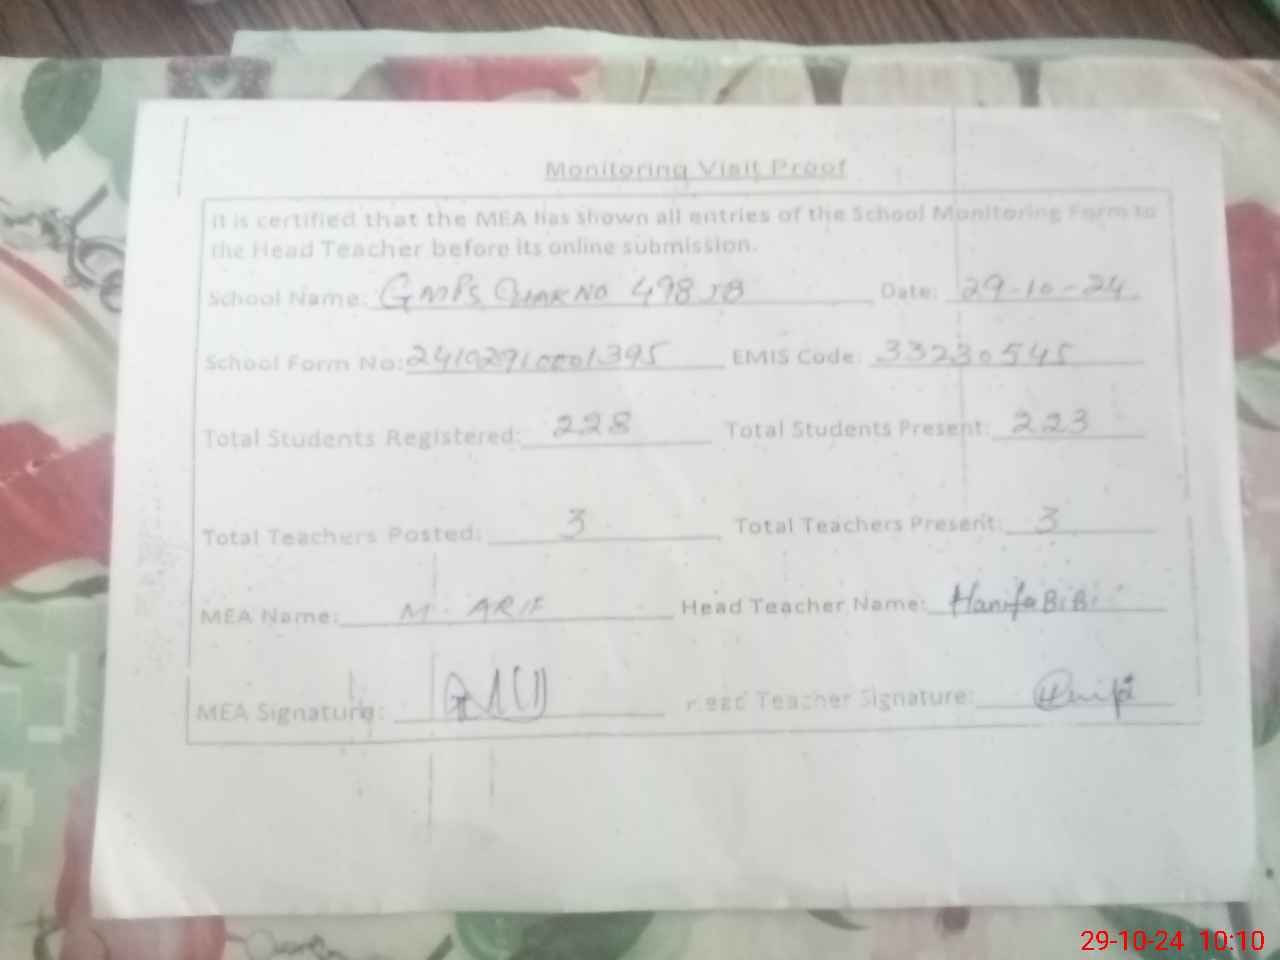 Monitoring Visit Proof
It is certified that the MEA has shown all entries of the School Monitoring Form to
the Head Teacher before its online submission.
School Name: GMPS CHAK NO 498 JB Date: 29-10-24
School Form No: 24102910001395 EMIS Code: 33230545
Total Students Registered: 228 Total Students Present: 223
Total Teachers Posted: 3 Total Teachers Present: 3
MEA Name: M. ARIF Head Teacher Name: Hanifa BiBi
MEA Signature: Head Teacher Signature: Hanifa
29-10-24 10:10